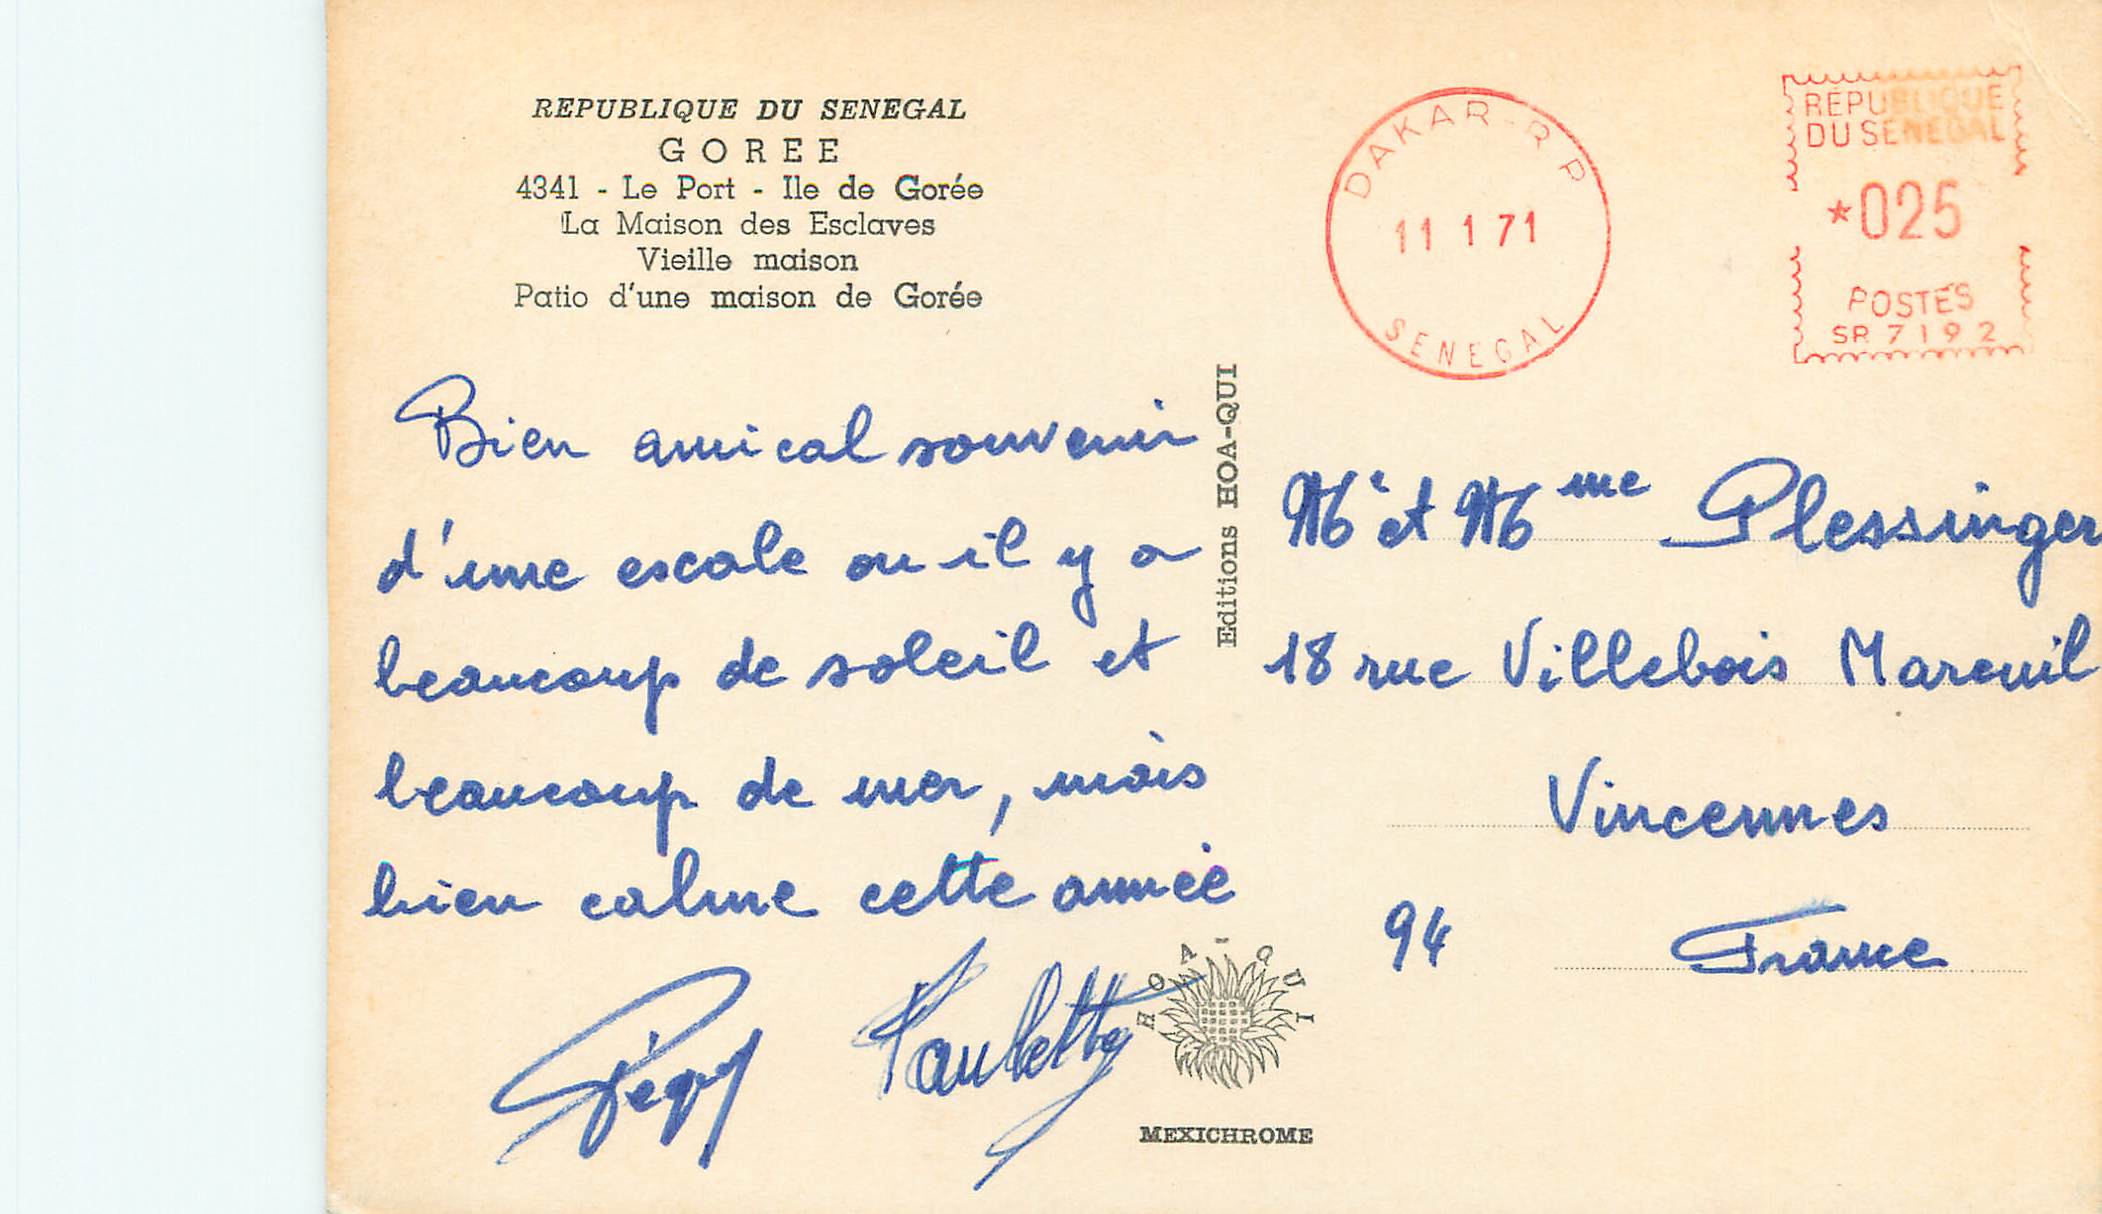 REPUBLIQUE DU SENEGAL
GOREE
4341 - Le Port - Ile de Gorée
La Maison des Esclaves
Vieille maison
Patio d'une maison de Gorée
Bien amical souvenir
d'une escale ou il y a
beaucoup de soleil et
beaucoup de mer, mais
bien calme cette année
Paulette
Editions HOA-QUI
HOA-QUI
MEXICHROME
DAKAR-RP
11 1 71
SENEGAL
RÉPUBLIQUE
DU SENEGAL
*025
POSTES
SR 7192
Mr et Mme Plessinger
18 rue Villebois Mareuil
Vincennes
94 France